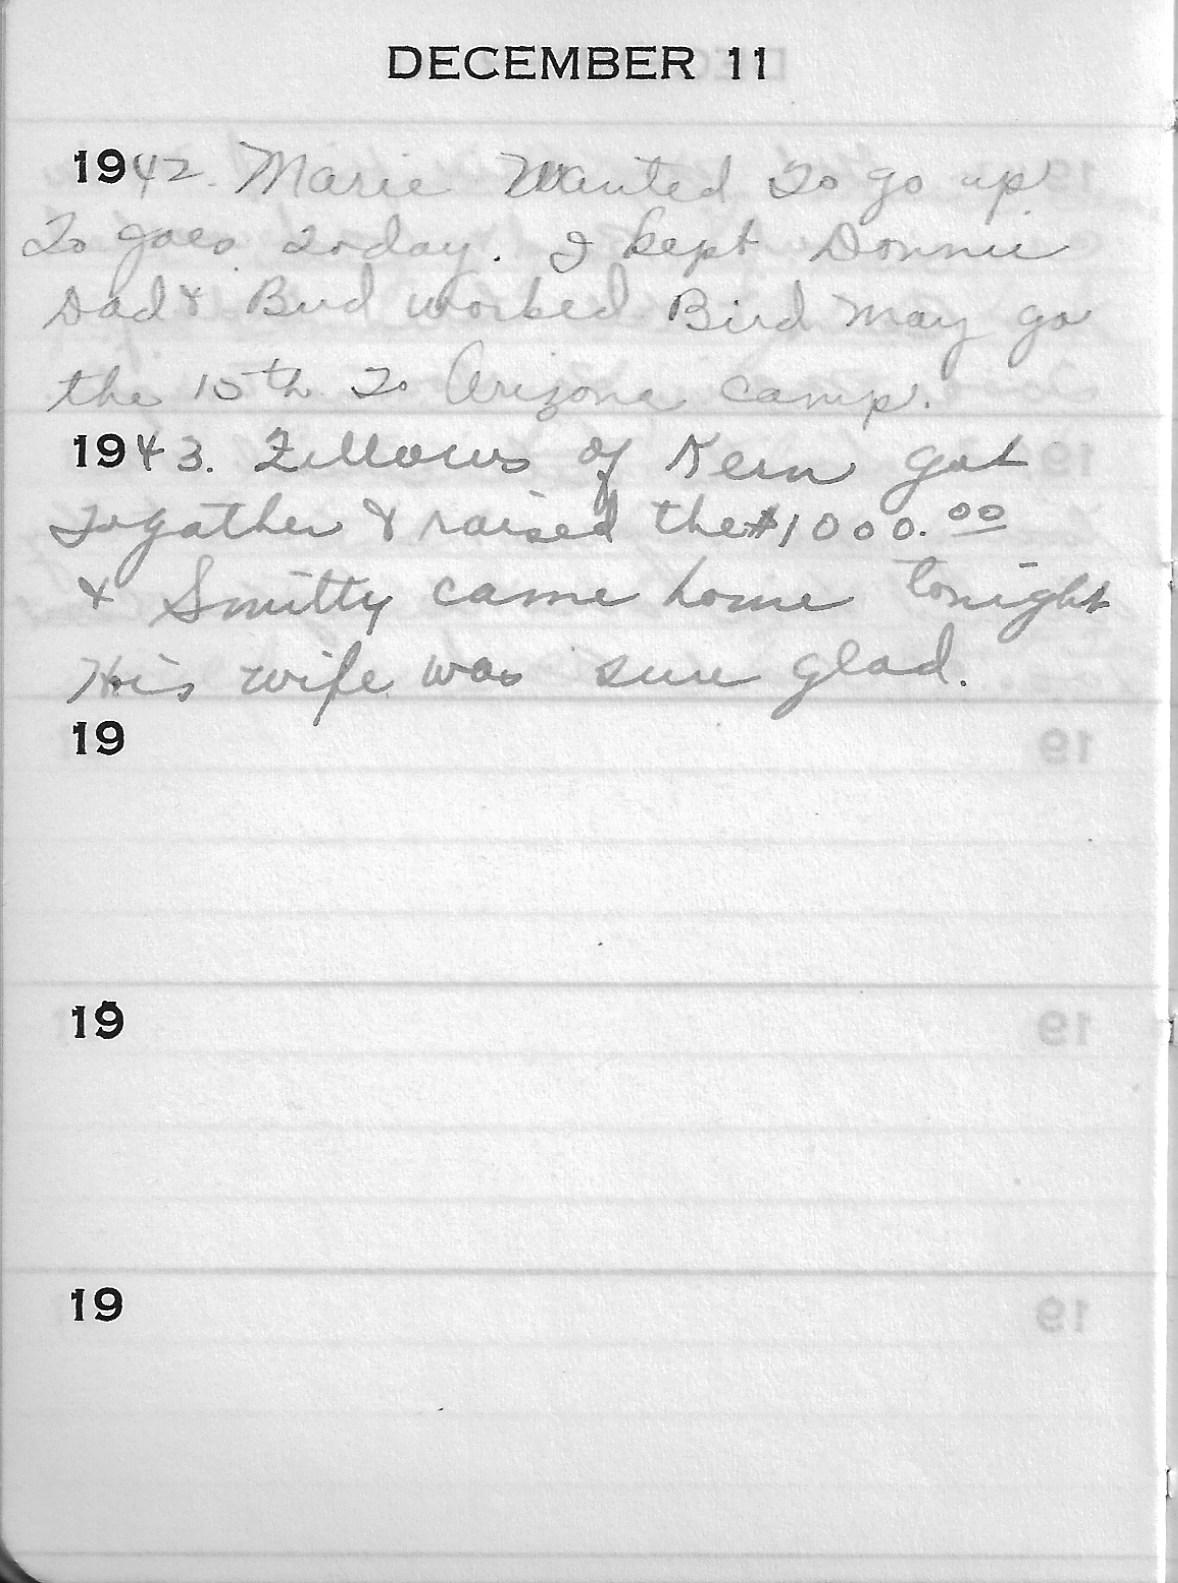 DECEMBER 11
1942. Marie Wanted To go up
To goes today. I kept Donnie
Dad & Bud worked Bird may go
the 15th To Arizona camp.
1943. Fellows of Kern got
togather & raised the $1000.00
& Smitty came home tonight
His wife was sure glad.
19
19
19